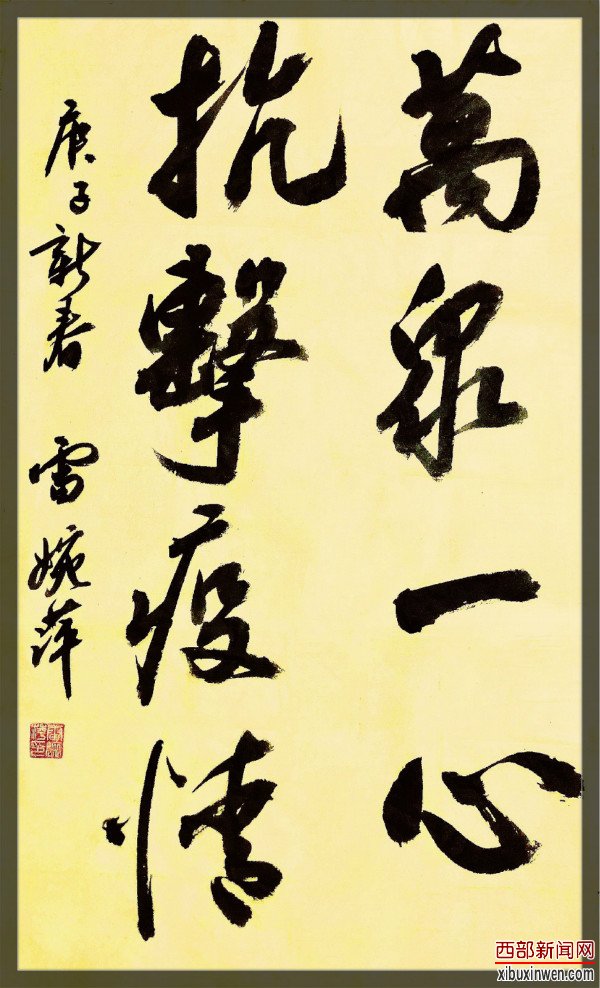 萬眾一心
抗擊疫情
庚子新春 雷婉萍
西部新闻网
xibuxinwen.com